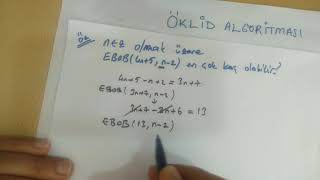 ÖKLİD ALGORİTMASI
n∈Z olmak üzere
EBOB(4n+5, n-2) en çok kaç olabilir?
4n+5-n+2 = 3n+7
EBOB(3n+7, n-2)
3n+7-3n+6 = 13
EBOB(13, n-2)